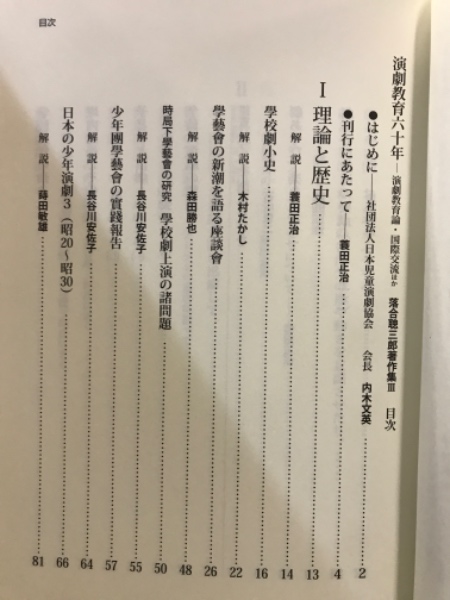 目次
演劇教育六十年―演劇教育論・国際交流ほか 落合聰三郎著作集Ⅲ 目次
●はじめに――社団法人日本児童演劇協会 会長 内木文英……2
●刊行にあたって――蓑田正治……4
Ⅰ 理論と歴史……13
解説――蓑田正治……14
学校劇小史……16
解説――木村たかし……22
學藝會の新潮を語る座談會……26
解説――森田勝也……48
時局下學藝會の研究 學校劇上演の諸問題……50
解説――長谷川安佐子……55
少年團學藝會の實踐報告……57
解説――長谷川安佐子……64
日本の少年演劇3（昭20～昭30）……66
解説――蒔田敏雄……81